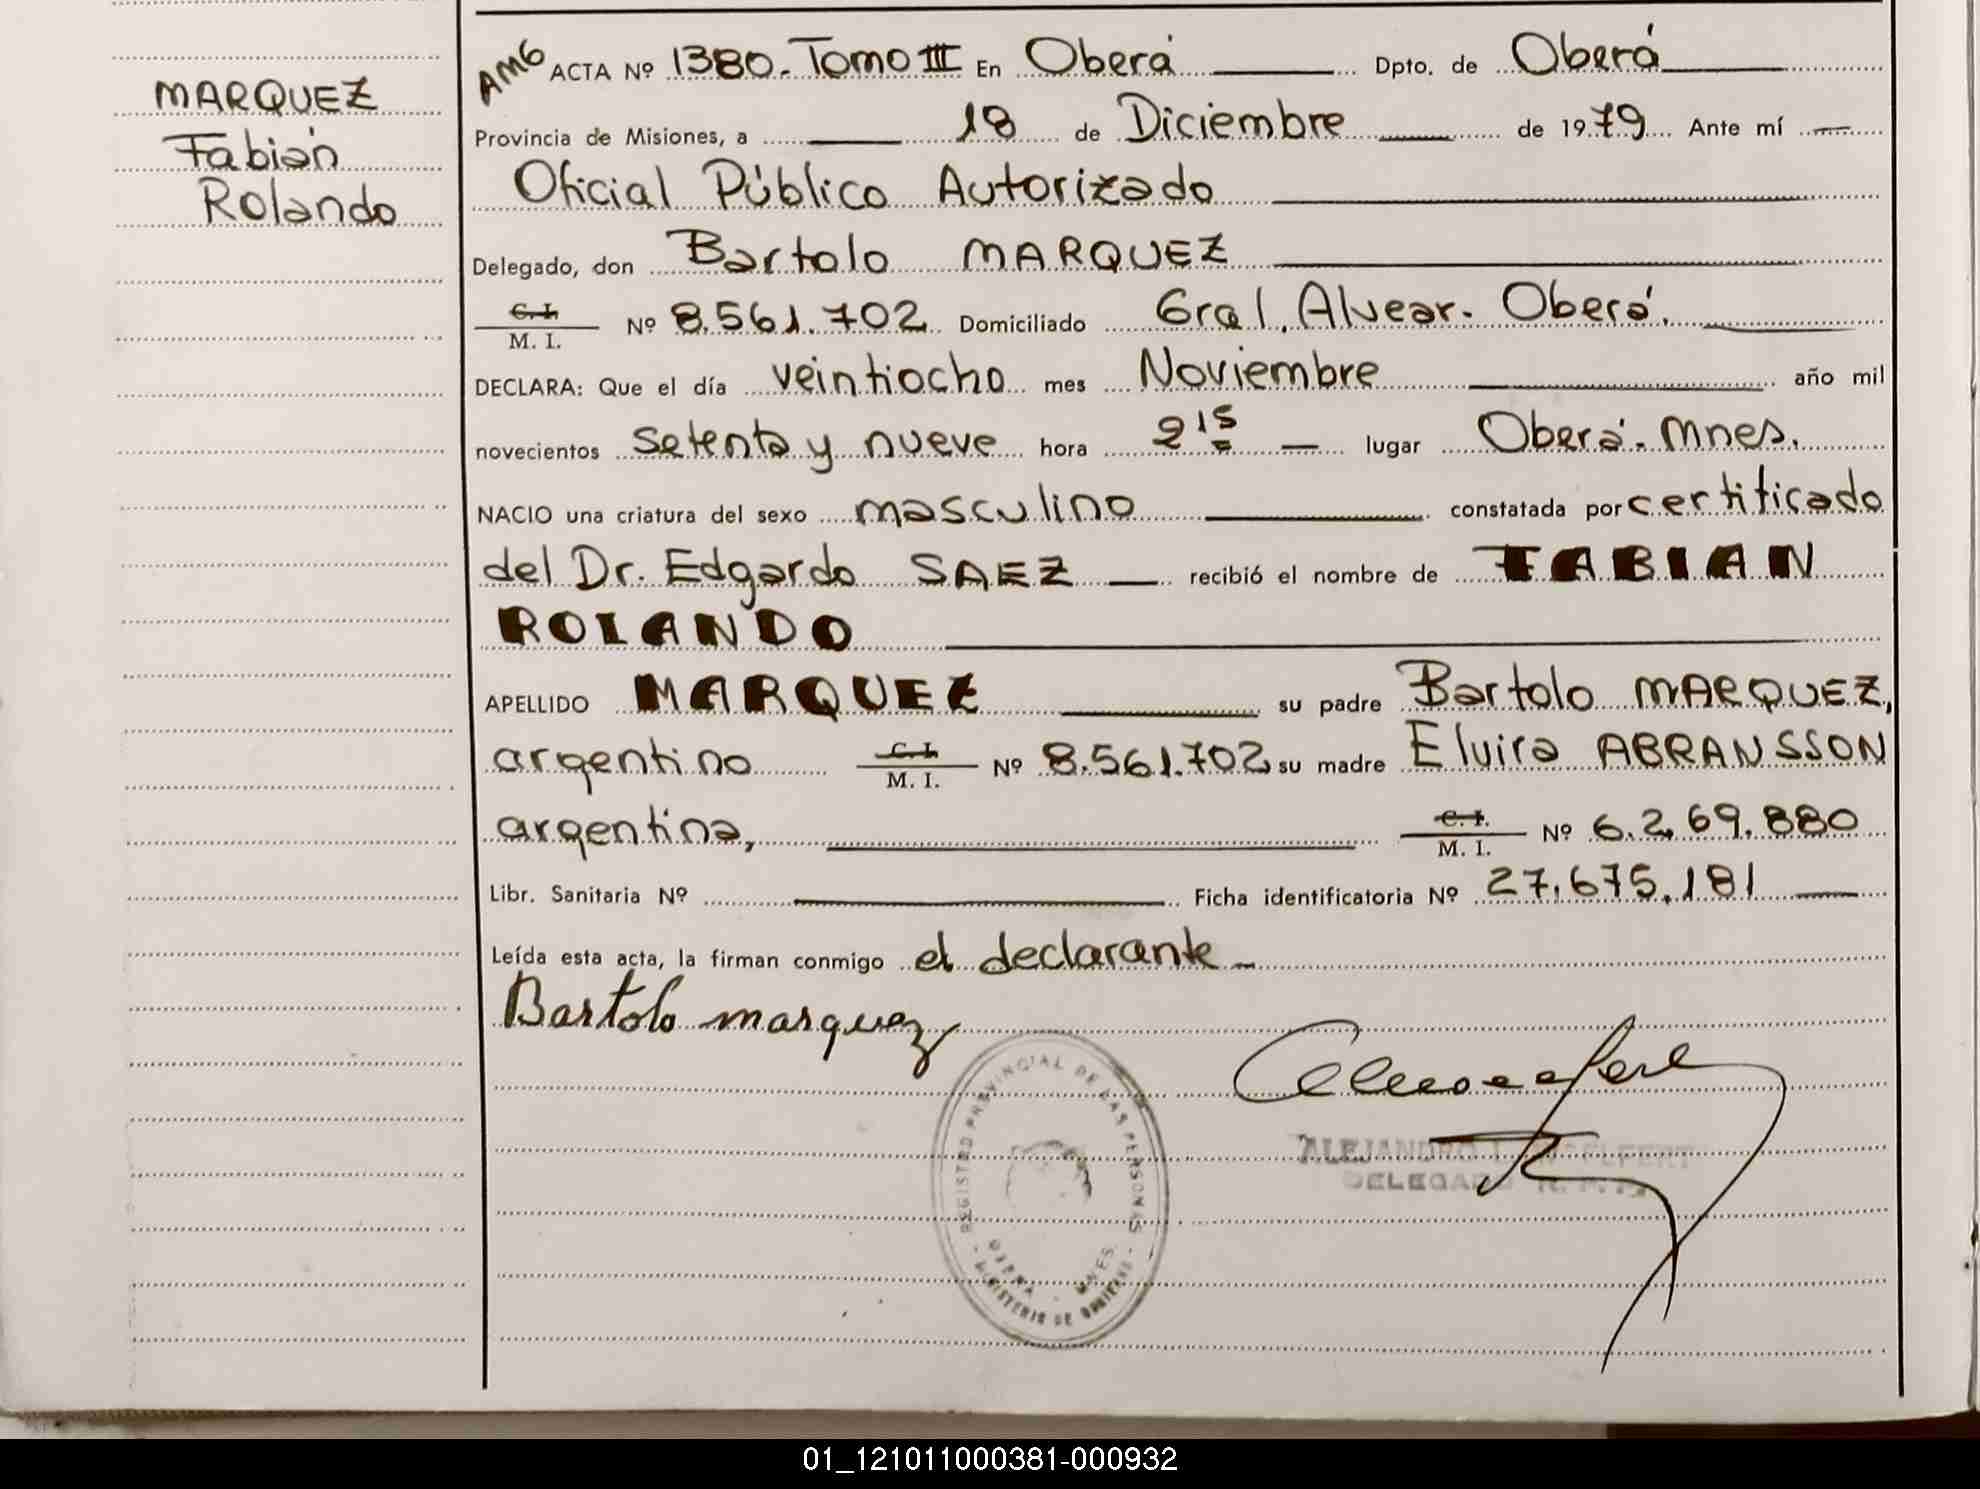 MARQUEZ
Fabián
Rolando
AMG ACTA Nº 1380. Tomo III En Oberá Dpto. de Oberá
Provincia de Misiones, a 18 de Diciembre de 1979 Ante mí
Oficial Público Autorizado
Delegado, don Bartolo MARQUEZ
C. I.
M. I. Nº 8.561.702 Domiciliado Gral. Alvear. Oberá.
DECLARA: Que el día veintiocho mes Noviembre año mil
novecientos setenta y nueve hora 2 15 lugar Oberá. Mnes.
NACIO una criatura del sexo masculino constatada por certificado
del Dr. Edgardo SAEZ recibió el nombre de FABIAN
ROLANDO
APELLIDO MARQUEZ su padre Bartolo MARQUEZ,
argentino C. I.
M. I. Nº 8.561.702 su madre Elvira ABRANSSON
argentina, C. I.
M. I. Nº 6.269.880
Libr. Sanitaria Nº Ficha identificatoria Nº 27.675.181
Leída esta acta, la firman conmigo el declarante
Bartolo marquez
REGISTRO PROVINCIAL DE LAS PERSONAS
OBERA - MNES.
MINISTERIO DE GOBIERNO
ALEJANDRO
DELEGADO R. P. P.
01_121011000381-000932